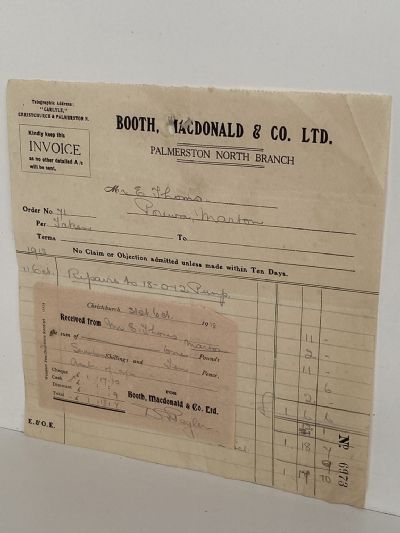 Telegraphic Address:
"CARLYLE,"
CHRISTCHURCH & PALMERSTON N.
Kindly keep this
INVOICE
as no other detailed A/c
will be sent.
BOOTH, MACDONALD & CO. LTD.
PALMERSTON NORTH BRANCH
Mr E Thoms.
Porewa, Marton
Order No. 71
Per Taken To
Terms
1918 No Claim or Objection admitted unless made within Ten Days.
11 Oct. Repairs to 18-0-12 Pump.
11 -
2 -
11 -
6
2
£ 1 6 6
1 18 7
1 17 10
Christchurch, 31st Oct. 1918
Received from Mr E Thoms Marton
the sum of One Pounds
Shillings and Ten Pence.
Cheque £
Cash £ 1/17/10
Discount £ 9
Total £
FOR
Booth, Macdonald & Co. Ltd.
E. & O.E.
No 6973